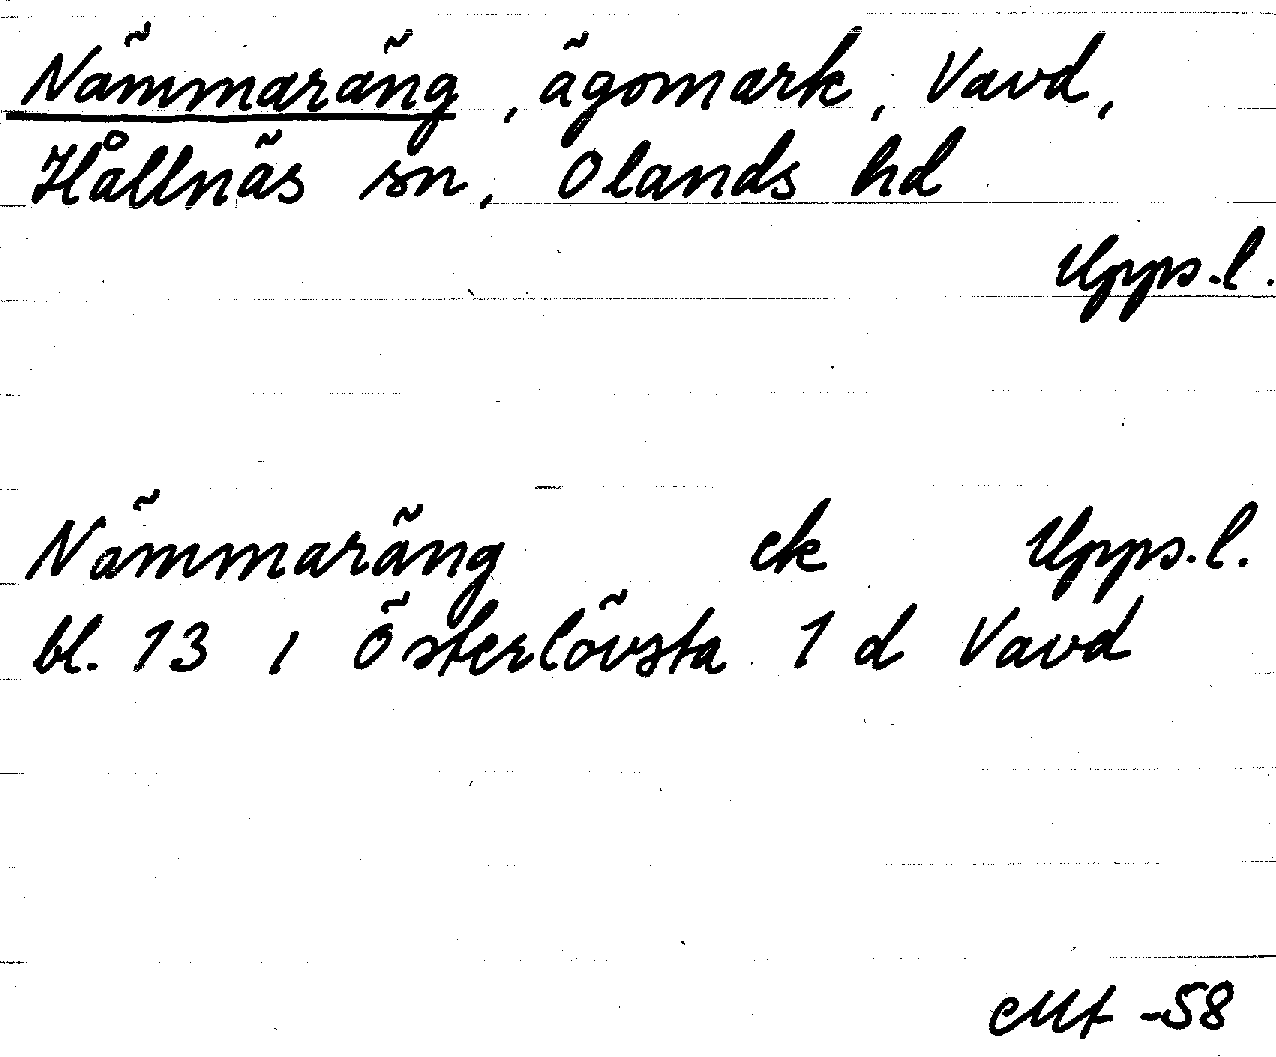 Nämmaräng, ägomark, Vavd,
Hållnäs sn, Olands hd
Upps.l.
Nämmaräng ek Upps.l.
bl. 13 i Österlövsta 1 d Vavd
-58